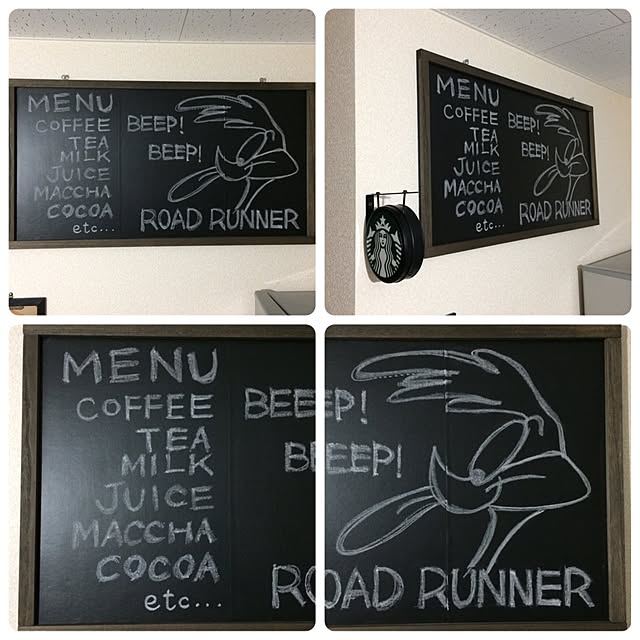 MENU
COFFEE
TEA
MILK
JUICE
MACCHA
COCOA
etc...
BEEP!
BEEP!
ROAD RUNNER
MENU
COFFEE
TEA
MILK
JUICE
MACCHA
COCOA
etc...
BEEP!
BEEP!
ROAD RUNNER
MENU
COFFEE
TEA
MILK
JUICE
MACCHA
COCOA
etc...
BEE
BE
RO
EP!
EEP!
OAD RUNNER